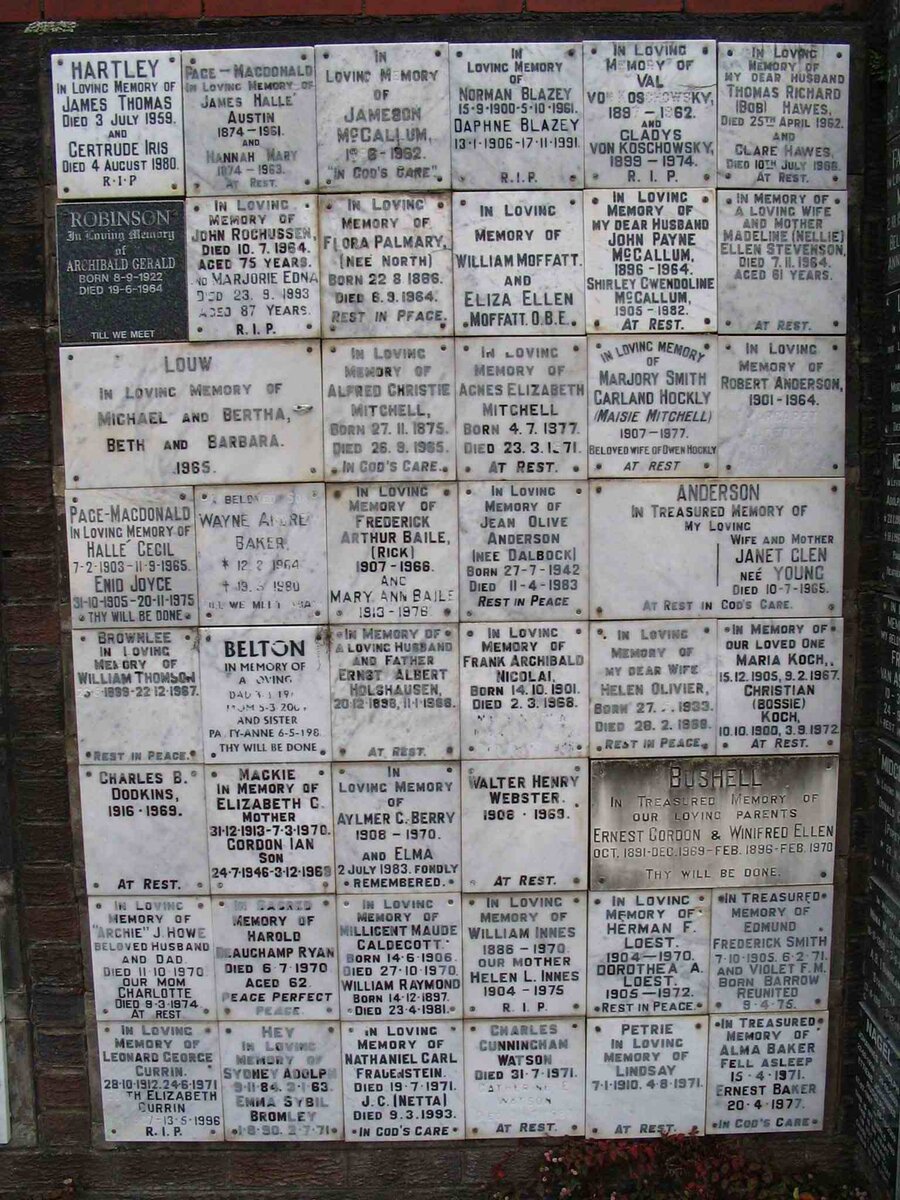 HARTLEY
IN LOVING MEMORY OF
JAMES THOMAS
DIED 3 JULY 1959.
AND
GERTRUDE IRIS
DIED 4 AUGUST 1980.
R.I.P
PAGE-MACDONALD
IN LOVING MEMORY OF
JAMES HALLE'
AUSTIN
1874-1961.
AND
HANNAH MARY
1874-1963.
AT REST.
IN
LOVING MEMORY
OF
JAMESON
McCALLUM,
1962.
"IN GOD'S CARE".
IN
LOVING MEMORY
OF
NORMAN BLAZEY
15.9.1900-5.10.1961.
DAPHNE BLAZEY
13.1.1906-17.11.1991.
R.I.P.
IN LOVING
MEMORY OF
VAL
VON KOSCHOWSKY,
1897-1962.
AND
GLADYS
VON KOSCHOWSKY,
1899-1974.
R.I.P.
IN LOVING
MEMORY OF
MY DEAR HUSBAND
THOMAS RICHARD
(BOB) HAWES,
DIED 25TH APRIL 1962.
AND
CLARE HAWES,
DIED 10TH JULY
AT REST.
ROBINSON
In Loving Memory
of
ARCHIBALD GERALD
BORN 8-9-1922
DIED 19-6-1964
TILL WE MEET
IN LOVING
MEMORY OF
JOHN ROCHUSSEN,
DIED 10.7.1964.
AGED 75 YEARS.
AND MARJORIE EDNA
DIED 23.9.1993
AGED 87 YEARS.
R.I.P.
IN LOVING
MEMORY OF
FLORA PALMARY,
(NEE NORTH)
BORN 22 8 1886.
DIED 6.9.1964.
REST IN PEACE.
IN LOVING
MEMORY OF
WILLIAM MOFFATT.
AND
ELIZA ELLEN
MOFFATT.O.B.E.
IN LOVING
MEMORY OF
MY DEAR HUSBAND
JOHN PAYNE
McCALLUM,
1896-1964.
SHIRLEY GWENDOLINE
McCALLUM,
1905-1982.
AT REST.
IN MEMORY OF
A LOVING WIFE
AND MOTHER
MADELINE (NELLIE)
ELLEN STEVENSON,
DIED 7.11.1964.
AGED 61 YEARS.
AT REST.
LOUW
IN LOVING MEMORY OF
MICHAEL AND BERTHA,
BETH AND BARBARA.
1965.
IN LOVING
MEMORY OF
ALFRED CHRISTIE
MITCHELL,
BORN 27.11.1875.
DIED 26.9.1965.
IN GOD'S CARE.
IN LOVING
MEMORY OF
AGNES ELIZABETH
MITCHELL
BORN 4.7.1877.
DIED 23.3.1971.
AT REST.
IN LOVING MEMORY
OF
MARJORY SMITH
GARLAND HOCKLY
(MAISIE MITCHELL)
1907-1977.
BELOVED WIFE OF OWEN HOCKLY
AT REST
IN LOVING
MEMORY OF
ROBERT ANDERSON,
1901-1964.
PAGE-MACDONALD
IN LOVING MEMORY OF
HALLE' CECIL
7-2-1903-11-9-1965.
ENID JOYCE
31-10-1905-20-11-1975
THY WILL BE DONE
BELOVED SON
WAYNE ANDRE
BAKER.
* 12 2 1964
1980
TILL WE MEET
IN LOVING
MEMORY OF
FREDERICK
ARTHUR BAILE,
(RICK)
1907-1966.
AND
MARY ANN BAILE
1913-1978
IN LOVING
MEMORY OF
JEAN OLIVE
ANDERSON
(NEE DALBOCK)
BORN 27-7-1942
DIED 11-4-1983
REST IN PEACE
ANDERSON
IN TREASURED MEMORY OF
MY LOVING
WIFE AND MOTHER
JANET GLEN
NEÉ YOUNG
DIED 10-7-1965.
AT REST IN GOD'S CARE.
BROWNLEE
IN LOVING
MEMORY OF
WILLIAM THOMSON
1899-22-12-1967.
REST IN PEACE.
BELTON
IN MEMORY OF
A LOVING
DAD
MOM 5-3
AND SISTER
PATTY-ANNE 6-5-198
THY WILL BE DONE
IN MEMORY OF
A LOVING HUSBAND
AND FATHER
ERNST ALBERT
HOLSHAUSEN,
20.12.1898, 11.1.1968.
AT REST.
IN LOVING
MEMORY OF
FRANK ARCHIBALD
NICOLAI,
BORN 14.10.1901.
DIED 2.3.1968.
IN LOVING
MEMORY OF
MY DEAR WIFE
HELEN OLIVIER,
BORN 27. 1933.
DIED 28.2.1969.
REST IN PEACE.
IN MEMORY OF
OUR LOVED ONE
MARIA KOCH,
15.12.1905, 9.2.1967.
CHRISTIAN
(BOSSIE)
KOCH,
10.10.1900, 3.9.1972.
AT REST.
CHARLES B.
DODKINS,
1916-1969.
AT REST.
MACKIE
IN MEMORY OF
ELIZABETH C.
MOTHER
31-12-1913-7-3-1970.
GORDON IAN
SON
24-7-1946-3-12-1969
IN
LOVING MEMORY
OF
AYLMER C. BERRY
1908-1970.
AND ELMA
2 JULY 1983. FONDLY
REMEMBERED.
WALTER HENRY
WEBSTER.
1908-1969.
AT REST.
BUSHELL
IN TREASURED MEMORY OF
OUR LOVING PARENTS
ERNEST GORDON & WINIFRED ELLEN
OCT. 1891-DEC.1969-FEB.1896-FEB.1970
THY WILL BE DONE.
IN LOVING
MEMORY OF
"ARCHIE" J. HOWE
BELOVED HUSBAND
AND DAD.
DIED 11-10 1970
OUR MOM
CHARLOTTE
DIED 9-3-1974
AT REST
IN SACRED
MEMORY OF
HAROLD
BEAUCHAMP RYAN
DIED 6-7-1970
AGED 62.
PEACE PERFECT
PEACE.
IN LOVING
MEMORY OF
MILLICENT MAUDE
CALDECOTT.
BORN 14.6.1906.
DIED 27.10.1970.
WILLIAM RAYMOND
BORN 14.12.1897.
DIED 23.4.1981.
IN LOVING
MEMORY OF
WILLIAM INNES
1886-1970.
OUR MOTHER
HELEN L. INNES
1904-1975
R.I.P.
IN LOVING
MEMORY OF
HERMAN F.
LOEST.
1904-1970.
DOROTHEA A.
LOEST.
1905-1972.
REST IN PEACE.
IN TREASURED
MEMORY OF
EDMUND
FREDERICK SMITH
7-10-1905. 6-2-71.
AND VIOLET F.M.
BORN BARROW
REUNITED
9-4-75.
IN LOVING
MEMORY OF
LEONARD GEORGE
CURRIN.
28-10-1912. 24-6-1971
ELIZABETH
CURRIN
13-5-1996
R.I.P.
HEY
IN LOVING
MEMORY OF
SYDNEY ADOLPH
9-11-84. 3-1-63.
EMMA SYBIL
BROMLEY
1-8-90. 2-7-71
IN LOVING
MEMORY OF
NATHANIEL CARL
FRAUENSTEIN.
DIED 19.7.1971.
J.C. (NETTA)
DIED 9.3.1993.
IN GOD'S CARE
CHARLES
CUNNINGHAM
WATSON
DIED 31-7-1971.
WATSON
AT REST.
PETRIE
IN LOVING
MEMORY OF
LINDSAY
7-1-1910. 4-8-1971.
AT REST.
IN TREASURED
MEMORY OF
ALMA BAKER
FELL ASLEEP
15-4-1971.
ERNEST BAKER
20-4-1977.
IN GOD'S CARE
NAGEL